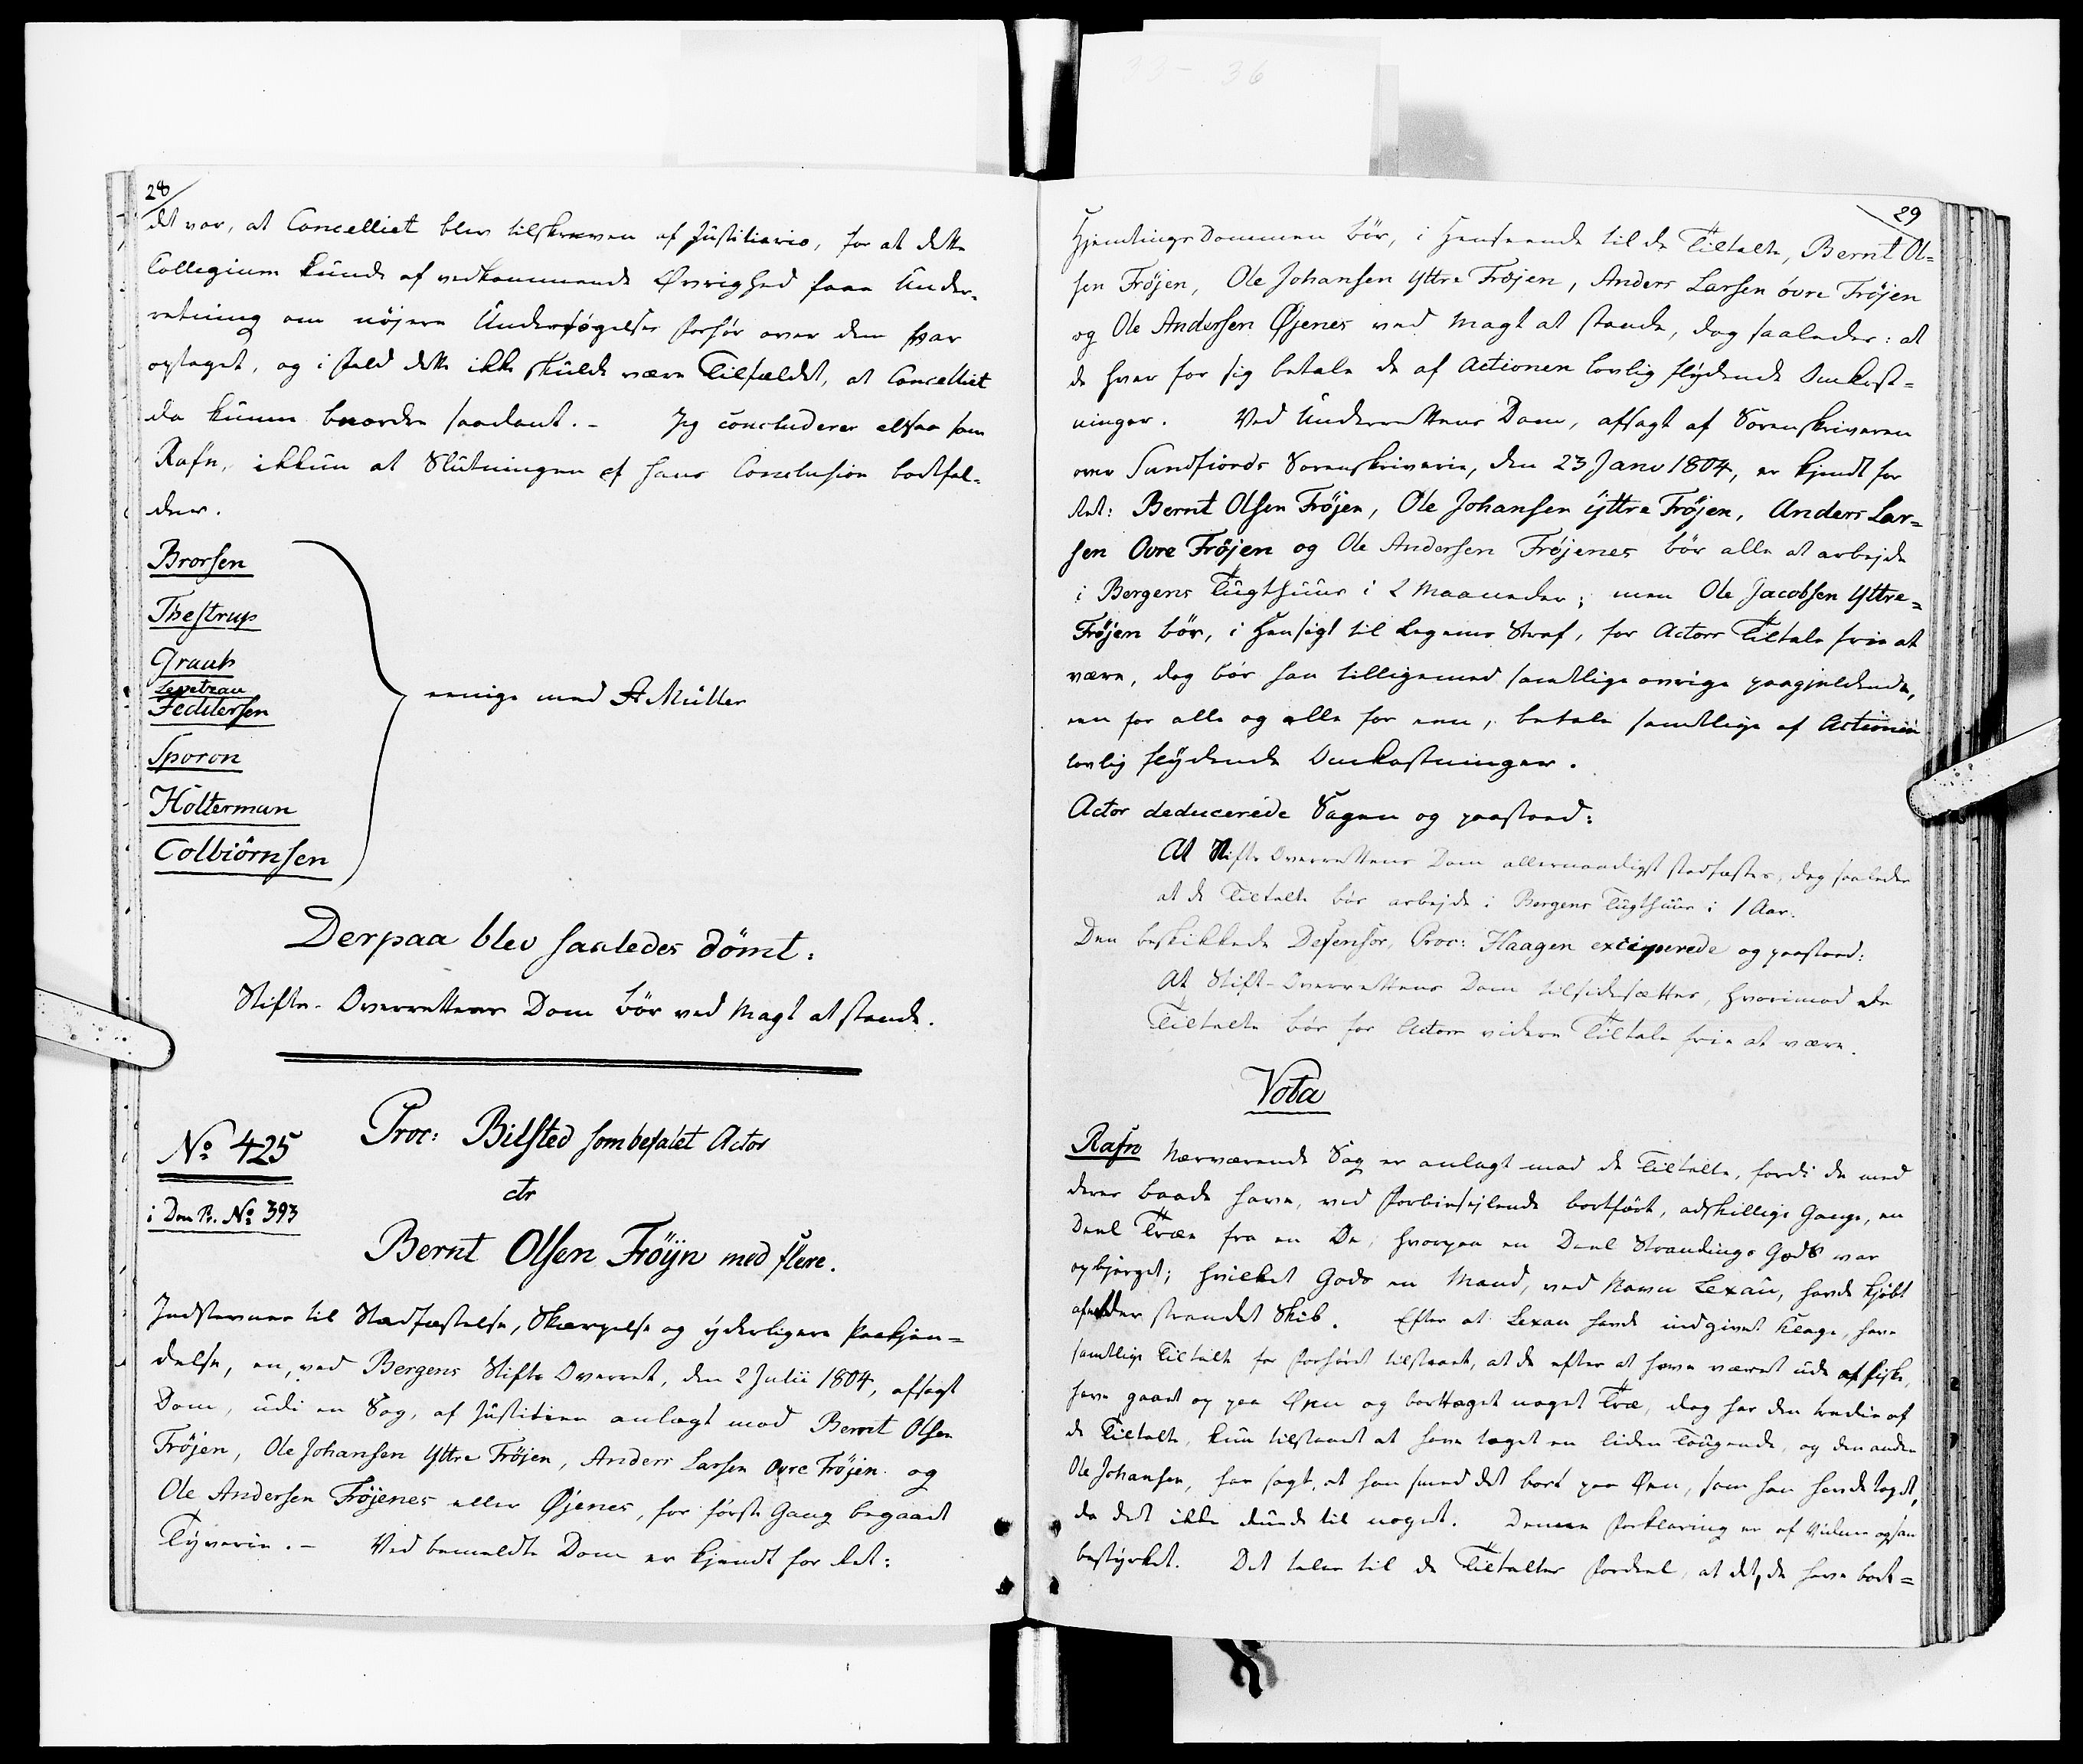 28
det var, at Cancelliet blev tilskreven af Justitiario, for at dette
Collegium kunde af vedkommende Øvrighed faae Under-
retning om nöjere Undersøgelses Forhör over den var
optaget, og ifald dette ikke skulde være Tilfældet, at Cancelliet
da kunne beordre saadant. - Jeg concluderer altsaa som
Rafn, ikkun at Slutningen af hans Conclusion bortfal-
der.
Brorsen
Thestrup
Graah
Levetzau
Feddersen
Sporon
Holterman
Colbiörnsen
eenige med A Müller
Derpaa blev saaledes dömt:
Stifts-Overrettens Dom bör ved Magt at stande.
No 425
Proc: Bilsted som befalet Actor
i Don Pr. No 393
ctr
Bernt Olsen Fröyn med flere.
Indstevner til Stadfæstelse, Skærpelse og yderligere Paakjen=
delse, en, ved Bergens Stifts Overret, den 2 Julii 1804, afsagt
Dom, udi en Sag, af Justitien anlagt mod Bernt Olsen
Fröjen, Ole Johansen Yttre Fröjen, Anders Larsen Ovre Fröjen og
Ole Andersen Fröjenes eller Øjenes, for förste Gang begaaet
Tyverie. - Ved bemeldte Dom er kjendt for Ret:
29
HjemtingsDommen bör, i Henseende til de Tiltalte, Bernt Ol=
sen Fröjen, Ole Johansen Yttre Fröjen, Anders Larsen övre Fröjen
og Ole Andersen Øjenes ved Magt at stande, dog saaledes: at
de hver for sig betale de af Actionen lovlig flydende Omkost=
ninger. Ved Underrettens Dom, afsagt af Sorenskriveren
over Sundfiords Sorenskriverie, den 23 Janv 1804, er kjendt for
Ret: Bernt Olsen Fröjen, Ole Johansen ÿttre Fröjen, Anders Lar=
sen Ovre Fröjen og Ole Andersen Fröjenes bör alle at arbejde
i Bergens Tugthuus i 2 Maaneder; men Ole Jacobsen Yttre=
Fröjen bör, i Hensigt til Legems Straf, for Actors Tiltale frie at
være, dog bör han tilligemed samtlige övrige paagjeldende,
een for alle og alle for een, betale samtlige af Actionen
lovlig flydende Omkostninger.
Actor deducerede Sagen og paastod:
At Stifts Overrettens Dom allernaadigst stadfæstes, dog saaledes
at de Tiltalte bör arbejde i Bergens Tugthuus i 1 Aar.
Den beskikkede Defensor, Proc: Haagen exciperede og paastod:
At Stift-Overrettens Dom tilsidesættes, hvorimod de
Tiltalte bör for Actors videre Tiltale frie at være.
Vota
Rafn Nærværende Sag er anlagt mod de Tiltalte, fordi de med
deres baade have, ved Forbiesejlende bortfört, adskillige Gange, en
Deel Træe fra en Øe, hvorpaa en Deel Strandings Gods var
opbjerget; hvilket Gods en Mand, ved Navn Lexau, havde kjöbt
af strandet Skib. Efter at Lexau havde indgivet Klage, have
samtlige Tiltalte for Forhöret tilstaaet, at de efter at have været ude at fiske,
have gaaet op paa Øen og borttaget noget Træ, dog har den tredie af
de Tiltalte, kun tilstaaet at have taget en liden Tougende, og den anden
Ole Johansen, har sagt, at han smed det bort paa Øen, som han havde taget,
da det ikke duede til noget. Denne Forklaring er af Vidner ogsaa
bestyrket. Det taler til de Tiltaltes Fordeel, at det, de have bort=